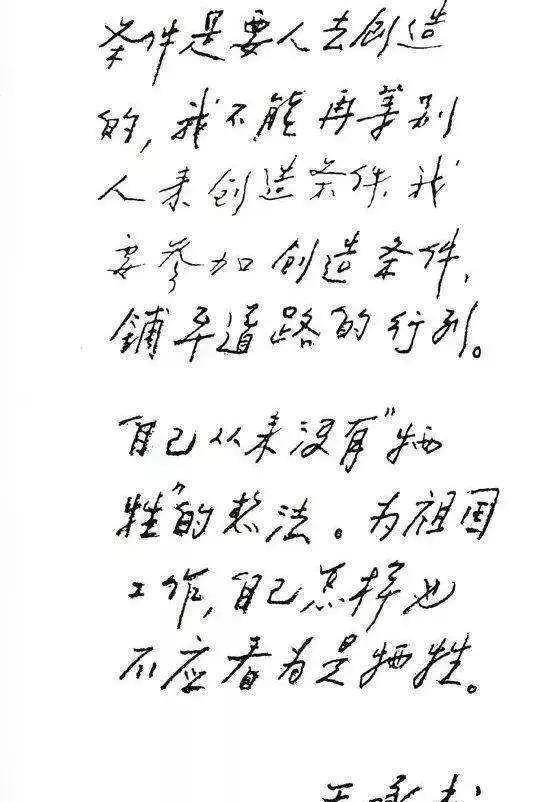 条件是要人去创造
的,我不能再等别
人来创造条件,我
要参加创造条件,
鋪平道路的行列。
自己从来没有“牺
牲”的想法。为祖国
工作,自己怎样也
不应看为是牺牲。
王承书